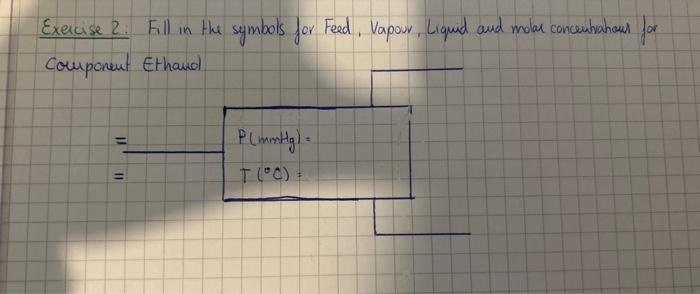 Exercise 2: Fill in the symbols for Feed, Vapour, Liquid and molar concentrations for
Component Ethanol
=
P(mmHg) =
=
T (°C) =